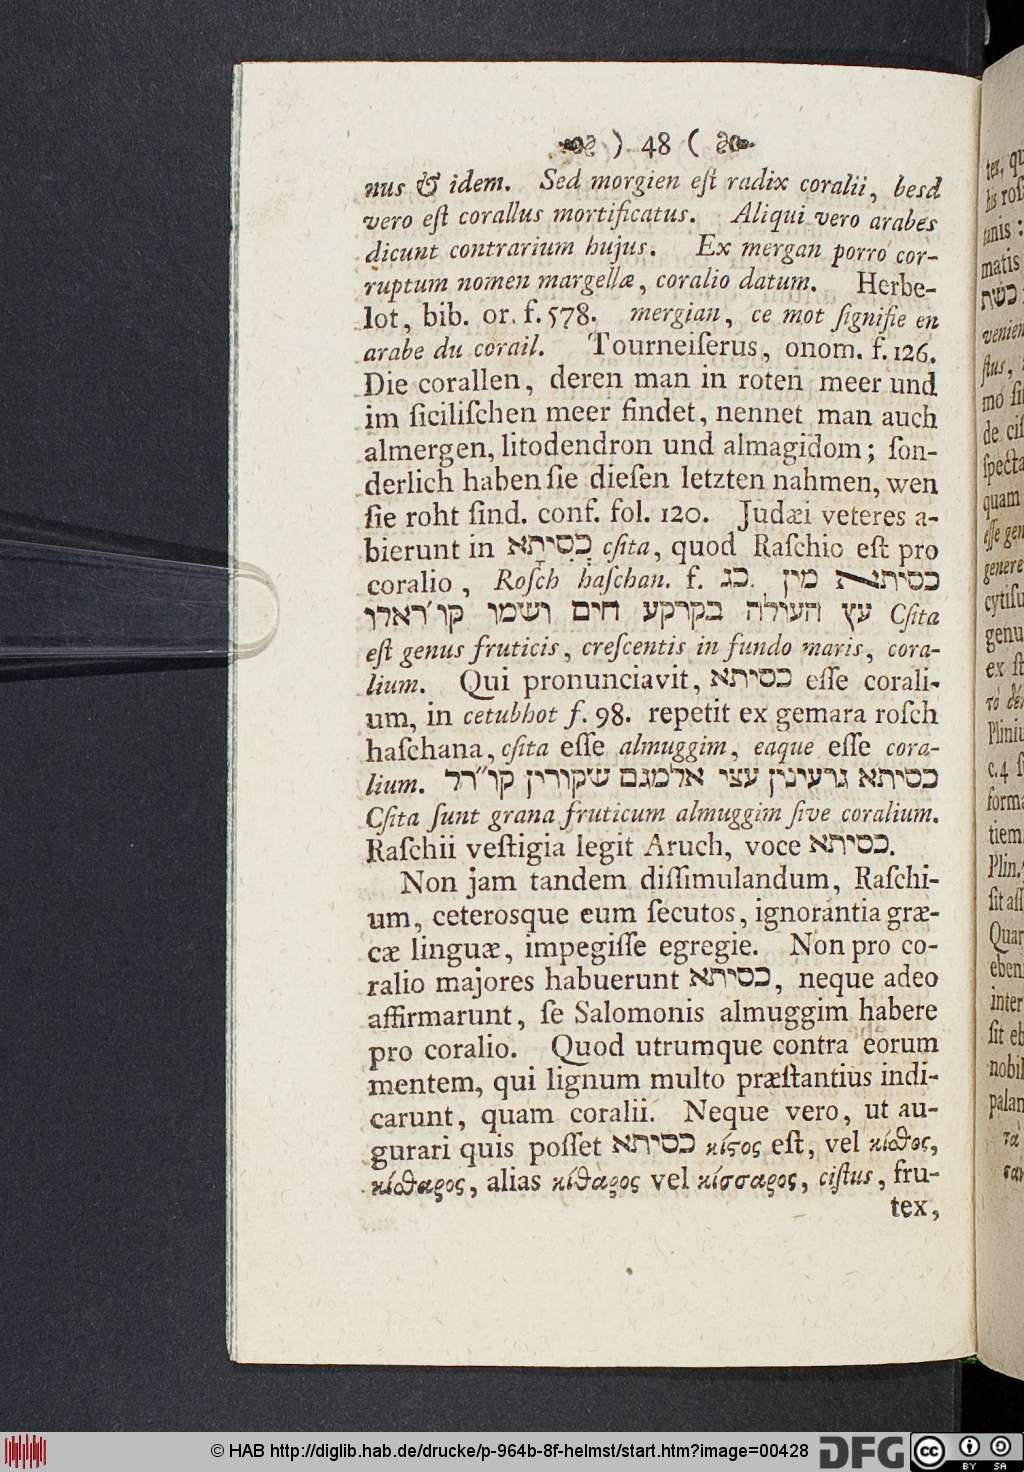 ) 48 (
nus & idem. Sed morgien eſt radix coralii, besd
vero eſt corallus mortificatus. Aliqui vero arabes
dicunt contrarium hujus. Ex mergan porro cor-
ruptum nomen margellæ, coralio datum. Herbe-
lot, bib. or. f. 578. mergian, ce mot ſignifie en
arabe du corail. Tourneiſerus, onom. f. 126.
Die corallen, deren man in roten meer und
im ſiciliſchen meer findet, nennet man auch
almergen, litodendron und almagidom; ſon-
derlich haben ſie dieſen letzten nahmen, wen
ſie roht ſind. conf. fol. 120. Judæi veteres a-
bierunt in כְּסִיתָא cſita, quod Raſchio eſt pro
coralio, Roſch haſchan. f. כג. כסיתא מין
עץ העולה בקרקע חים ושמו קו׳ראלו Cſita
eſt genus fruticis, creſcentis in fundo maris, cora-
lium. Qui pronunciavit, כסיתא eſſe corali-
um, in cetubhot f. 98. repetit ex gemara roſch
haſchana, cſita eſſe almuggim, eaque eſſe cora-
lium. כסיתא גרעינין עצי אלמגם שקורין קו״רל
Cſita ſunt grana fruticum almuggim ſive coralium.
Raſchii veſtigia legit Aruch, voce כסיתא.
Non jam tandem diſſimulandum, Raſchi-
um, ceterosque eum ſecutos, ignorantia græ-
cæ linguæ, impegiſſe egregie. Non pro co-
ralio majores habuerunt כסיתא, neque adeo
affirmarunt, ſe Salomonis almuggim habere
pro coralio. Quod utrumque contra eorum
mentem, qui lignum multo præſtantius indi-
carunt, quam coralii. Neque vero, ut au-
gurari quis poſſet כסיתא κίςος eſt, vel κίσθος,
κίσθαρος, alias κίθαρος vel κίσσαρος, ciſtus, fru-
tex,
© HAB http://diglib.hab.de/drucke/p-964b-8f-helmst/start.htm?image=00428
DFG
cc BY SA